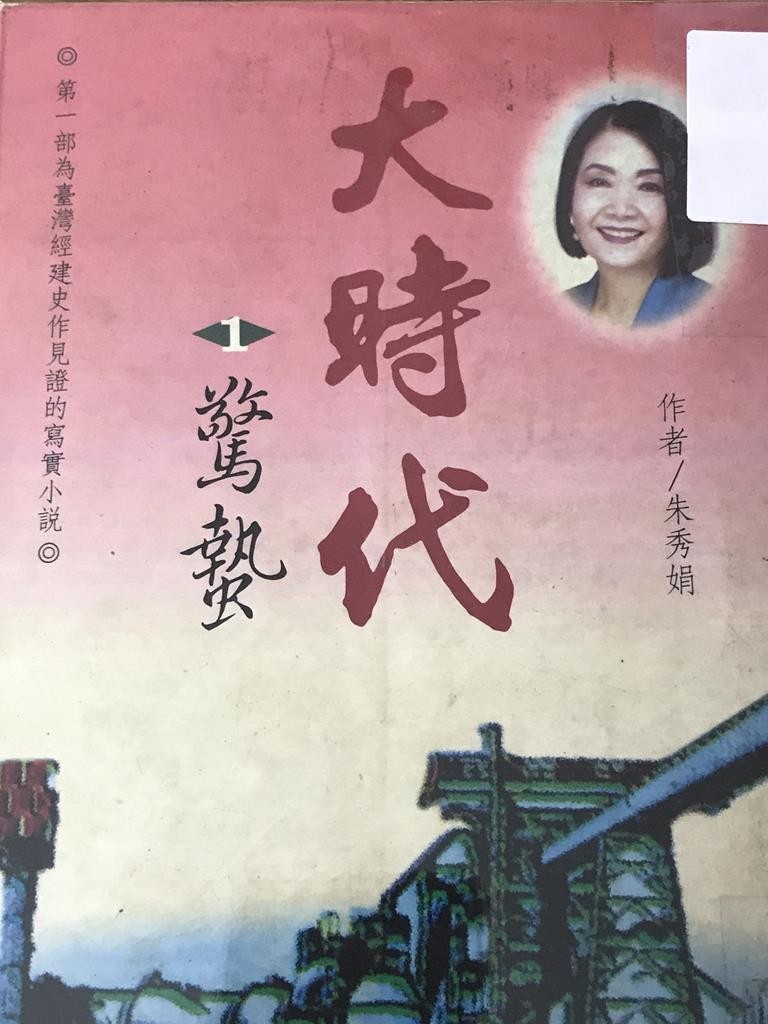 作者/朱秀娟
大時代
1
驚蟄
◎第一部為臺灣經建史作見證的寫實小説◎